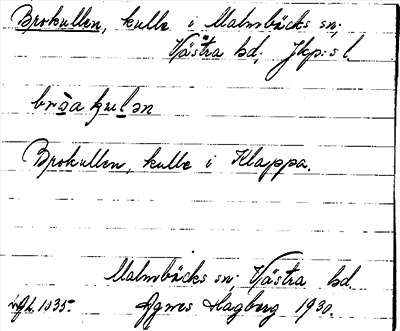 Brokullen, kulle i Malmbäcks sn;
Västra hd, Jkp:s l.
Brokullen, kulle i Klappa.
Malmbäcks sn; Västra hd
Agnes Hagberg 1930.